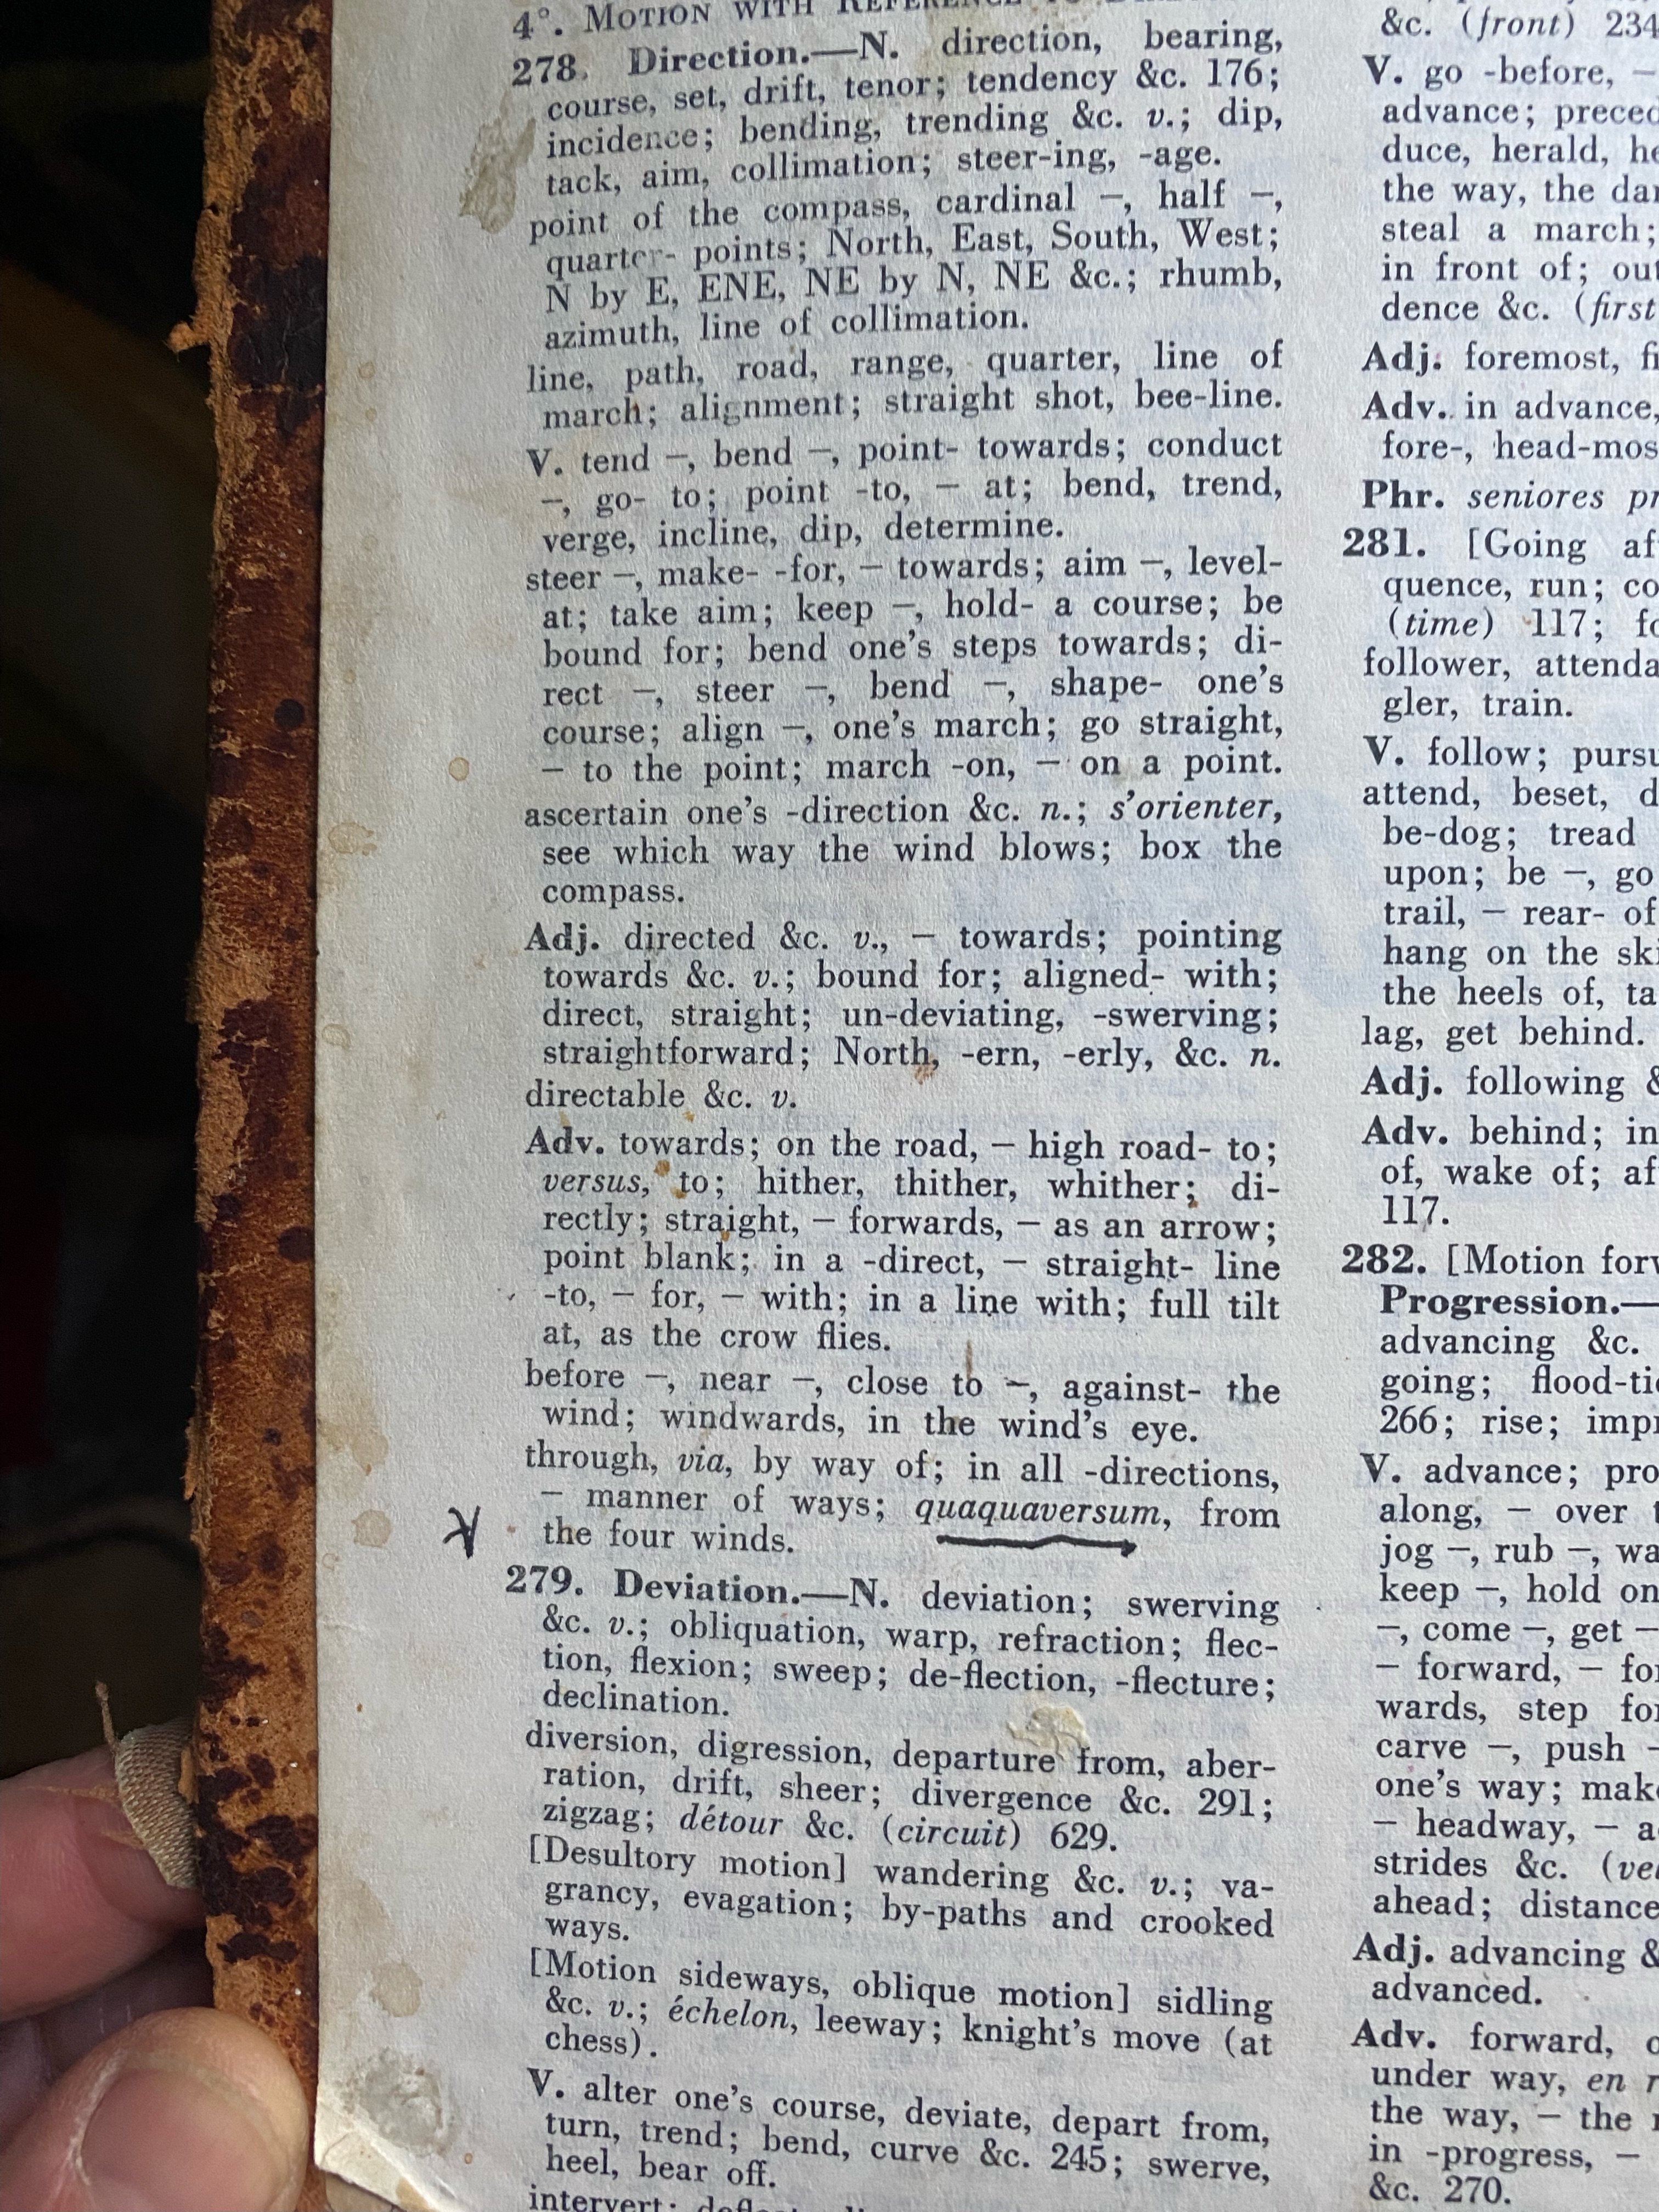 4°. MOTION WITH REFERENCE TO
278. Direction.—N. direction, bearing,
course, set, drift, tenor; tendency &c. 176;
incidence; bending, trending &c. v.; dip,
tack, aim, collimation; steer-ing, -age.
point of the compass, cardinal –, half –,
quarter- points; North, East, South, West;
N by E, ENE, NE by N, NE &c.; rhumb,
azimuth, line of collimation.
line, path, road, range, quarter, line of
march; alignment; straight shot, bee-line.
V. tend –, bend –, point- towards; conduct
–, go- to; point -to, – at; bend, trend,
verge, incline, dip, determine.
steer –, make- -for, – towards; aim –, level-
at; take aim; keep –, hold- a course; be
bound for; bend one's steps towards; di-
rect –, steer –, bend –, shape- one's
course; align –, one's march; go straight,
– to the point; march -on, – on a point.
ascertain one's -direction &c. n.; s'orienter,
see which way the wind blows; box the
compass.
Adj. directed &c. v., – towards; pointing
towards &c. v.; bound for; aligned- with;
direct, straight; un-deviating, -swerving;
straightforward; North, -ern, -erly, &c. n.
directable &c. v.
Adv. towards; on the road, – high road- to;
versus, to; hither, thither, whither; di-
rectly; straight, – forwards, – as an arrow;
point blank; in a -direct, – straight- line
-to, – for, – with; in a line with; full tilt
at, as the crow flies.
before –, near –, close to –, against- the
wind; windwards, in the wind's eye.
through, via, by way of; in all -directions,
– manner of ways; quaquaversum, from
the four winds.
279. Deviation.—N. deviation; swerving
&c. v.; obliquation, warp, refraction; flec-
tion, flexion; sweep; de-flection, -flecture;
declination.
diversion, digression, departure from, aber-
ration, drift, sheer; divergence &c. 291;
zigzag; détour &c. (circuit) 629.
[Desultory motion] wandering &c. v.; va-
grancy, evagation; by-paths and crooked
ways.
[Motion sideways, oblique motion] sidling
&c. v.; échelon, leeway; knight's move (at
chess).
V. alter one's course, deviate, depart from,
turn, trend; bend, curve &c. 245; swerve,
heel, bear off.
intervert;
&c. (front) 234
V. go -before, –
advance; preced
duce, herald, he
the way, the dan
steal a march;
in front of; out
dence &c. (first
Adj. foremost, fi
Adv. in advance,
fore-, head-mos
Phr. seniores pr
281. [Going af
quence, run; co
(time) 117; fo
follower, attenda
gler, train.
V. follow; pursu
attend, beset, d
be-dog; tread
upon; be –, go
trail, – rear- of
hang on the ski
the heels of, ta
lag, get behind.
Adj. following &
Adv. behind; in
of, wake of; af
117.
282. [Motion forw
Progression.—
advancing &c.
going; flood-tid
266; rise; impr
V. advance; pro
along, – over t
jog –, rub –, wa
keep –, hold on
–, come –, get –
– forward, – for
wards, step for
carve –, push –
one's way; make
– headway, – a
strides &c. (vel
ahead; distance
Adj. advancing &
advanced.
Adv. forward, o
under way, en r
the way, – the r
in -progress, –
&c. 270.